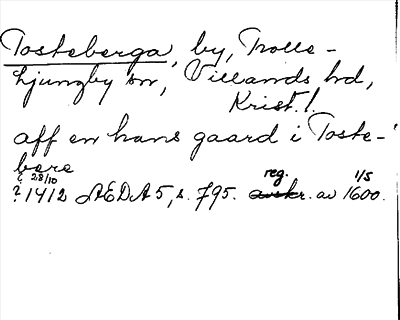 Tosteberga, by, Trolle-
Ljungby sn, Villands hd,
Krist. l.
aff en hans gaard i Toste-
bere
? 28/10 reg. 1/5
? 1412 ÆDA 5, s. 795. avskr. av 1600.